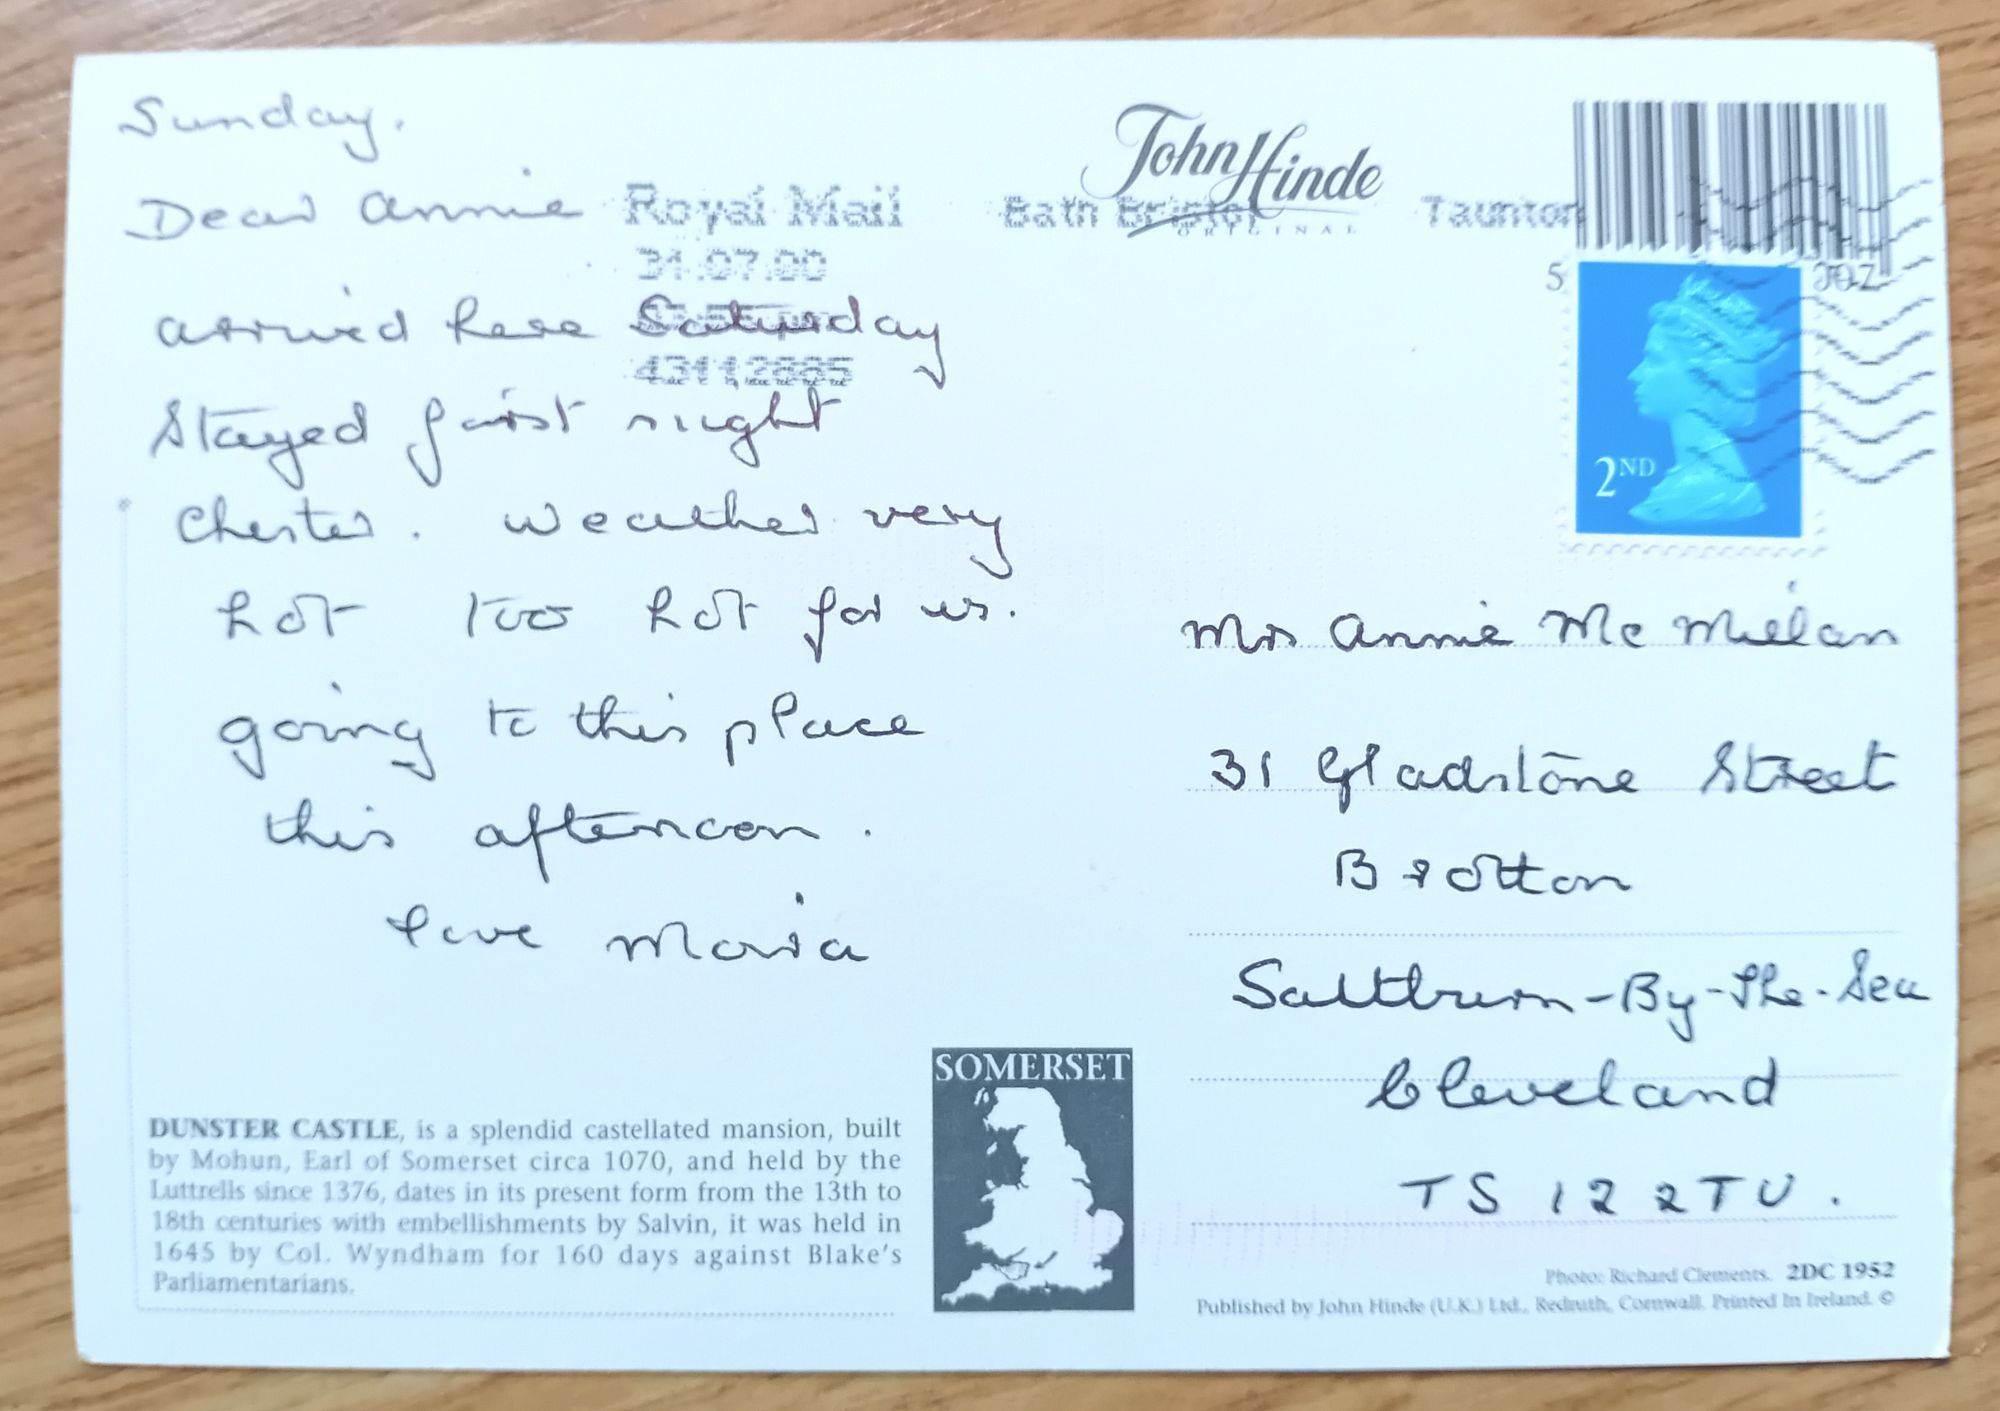 Sunday.
Dear Annie
arrived here Saturday
Stayed first night
Chester. Weather very
hot too hot for us.
going to this place
this afternoon.
love Maria
Royal Mail
Bath Bristol Taunton
31.07.00
43112885
John Hinde
ORIGINAL
5
2ND
Mrs Annie Mc Millan
31 Gladstone Street
Brotton
Saltburn-By-The-Sea
Cleveland
TS 12 2TU.
DUNSTER CASTLE, is a splendid castellated mansion, built
by Mohun, Earl of Somerset circa 1070, and held by the
Luttrells since 1376, dates in its present form from the 13th to
18th centuries with embellishments by Salvin, it was held in
1645 by Col. Wyndham for 160 days against Blake's
Parliamentarians.
SOMERSET
Photo: Richard Clements. 2DC 1952
Published by John Hinde (U.K.) Ltd., Redruth, Cornwall. Printed In Ireland. ©